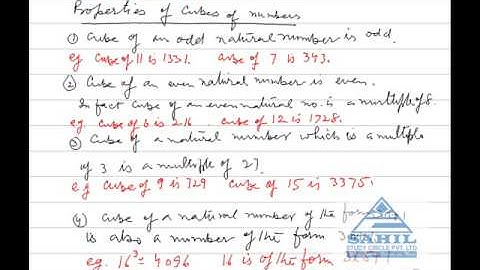 Properties of Cubes of numbers
① Cube of an odd natural number is odd.
eg Cube of 11 is 1331. Cube of 7 is 343.
② Cube of an even natural number is even.
In fact Cube of an even natural no. is a multiple of 8.
eg. Cube of 6 is 216. Cube of 12 is 1728.
③ Cube of a natural number which is a multiple
of 3 is a multiple of 27.
eg Cube of 9 is 729 Cube of 15 is 3375.
④ Cube of a natural number of the form
is also a number of the form
eg. 16³ = 4096 16 is of the form
SAHIL
STUDY CIRCLE PVT. LTD